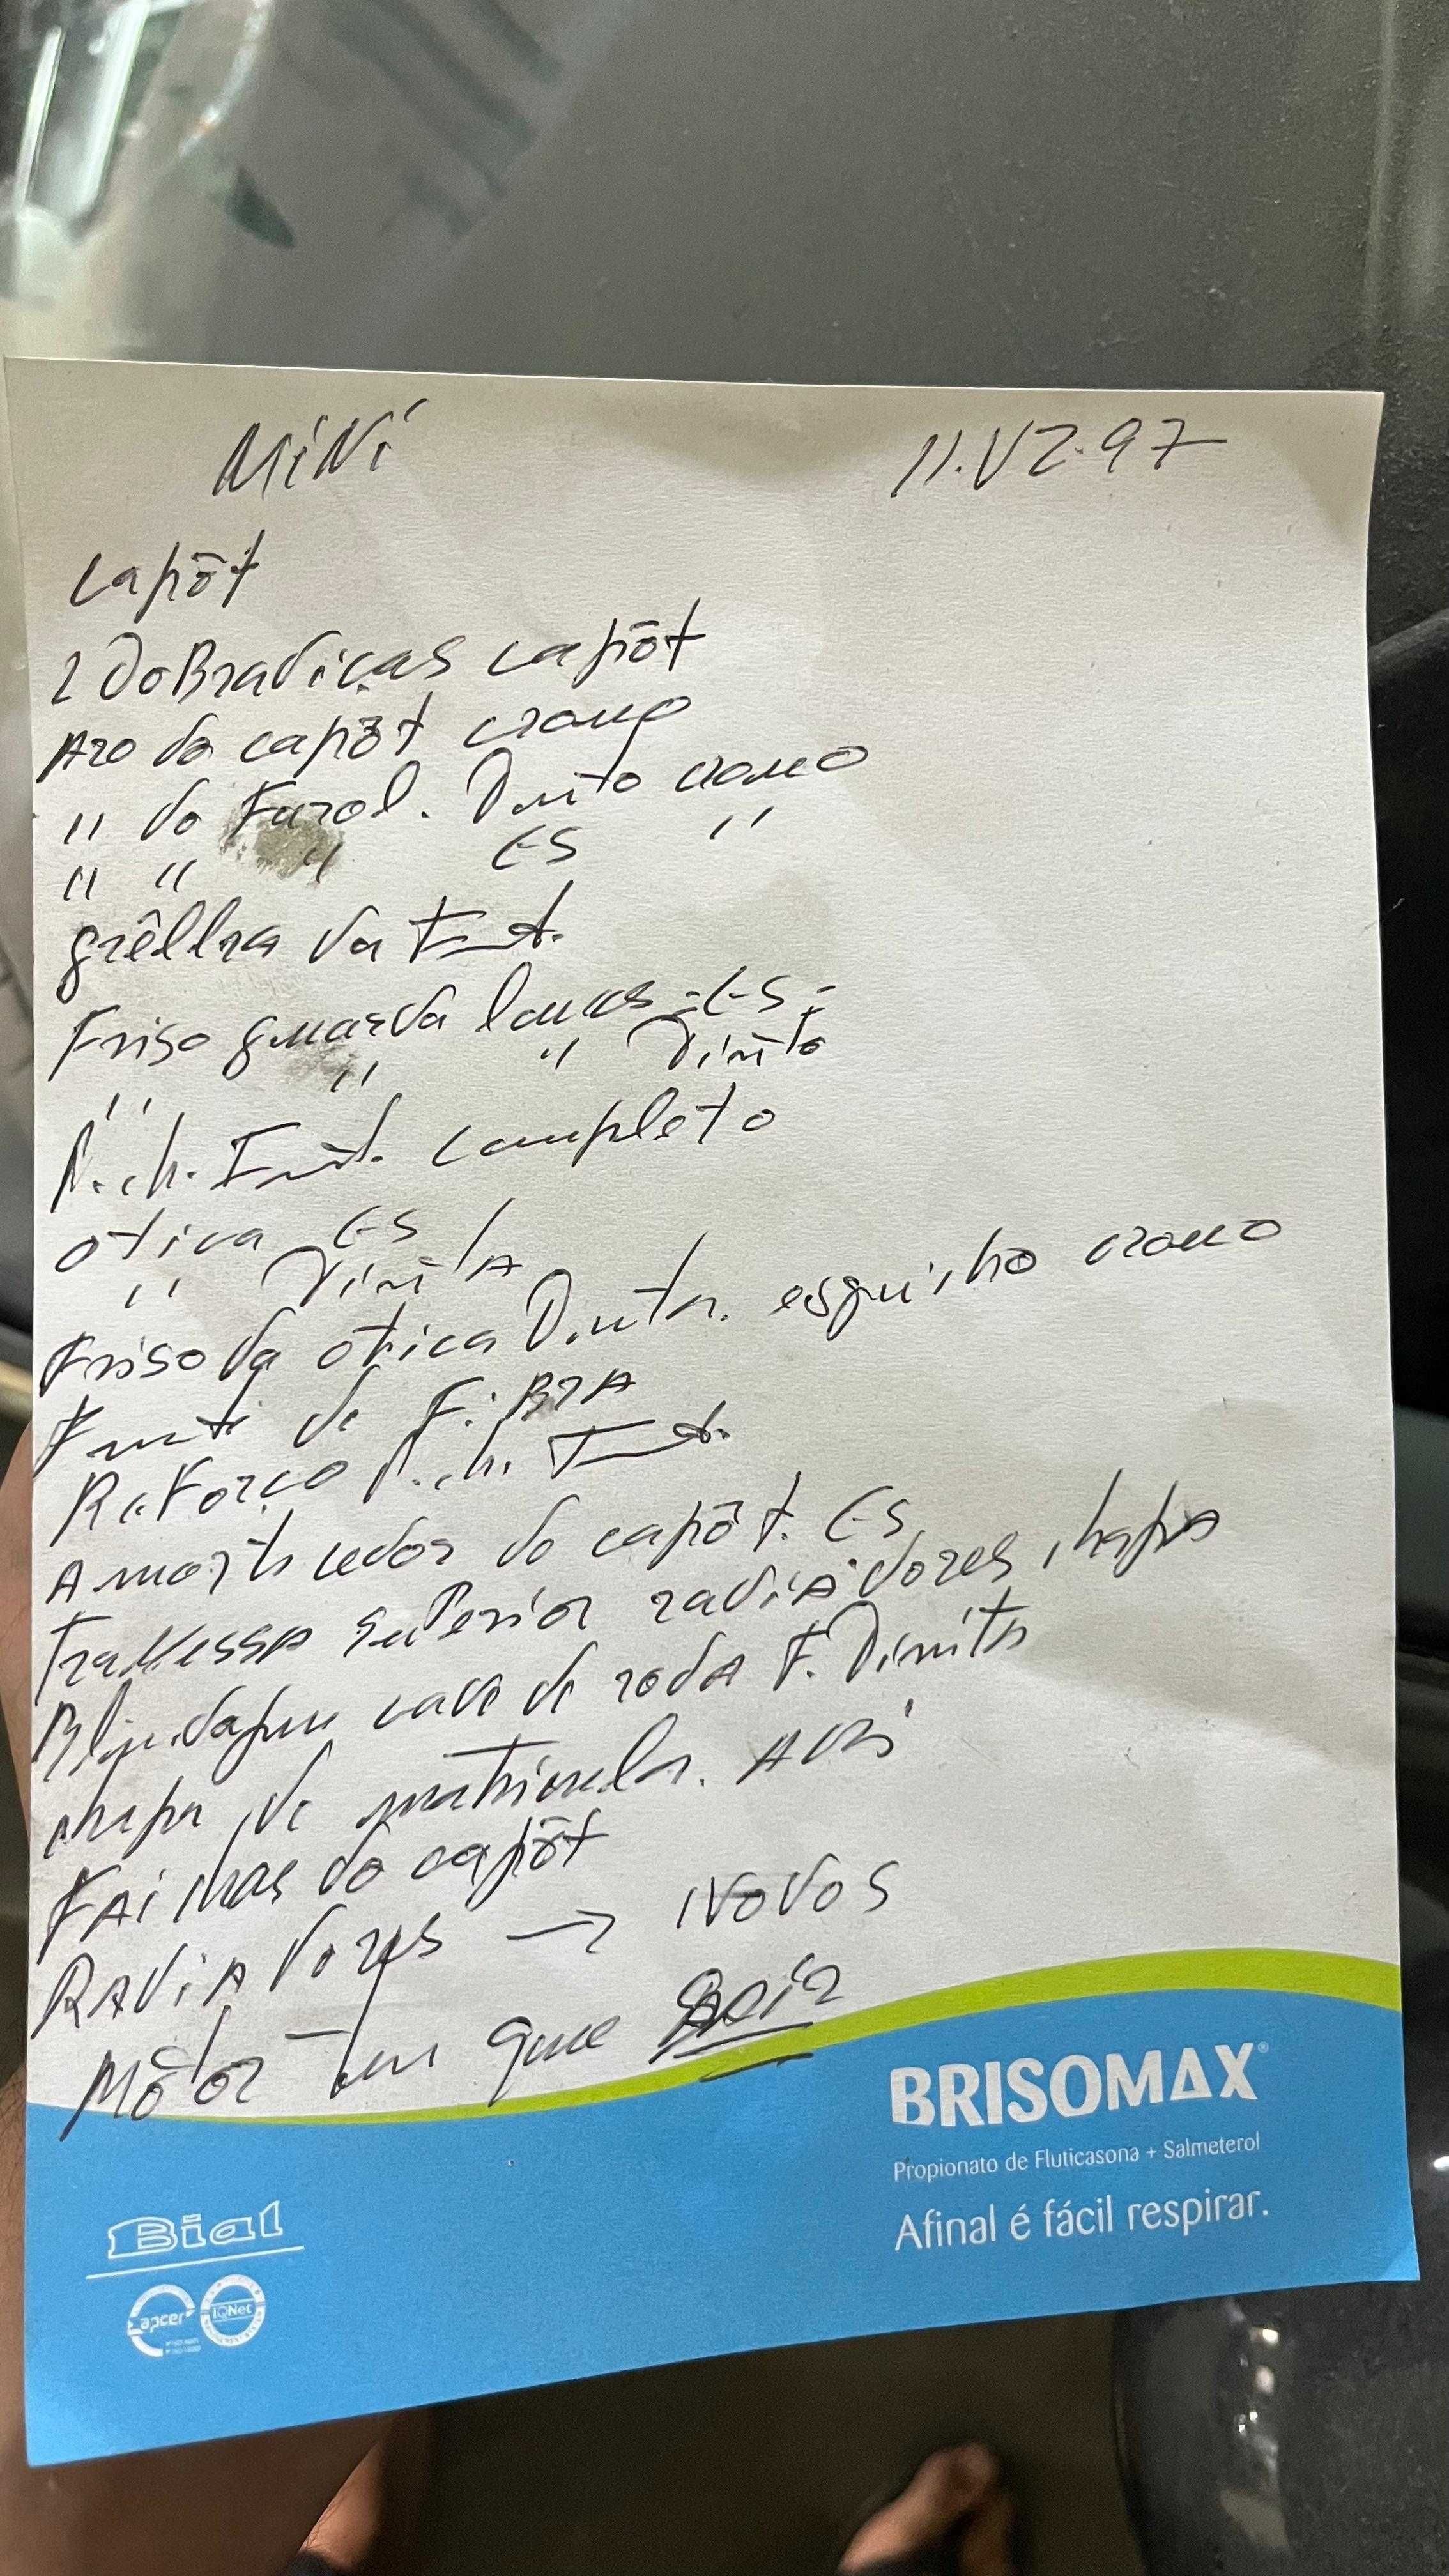 MiNi 11.VZ.97
capôt
2 DoBradiças capôt
Aro do capôt cromo
" do Farol. Direito cromo
" " " ES "
grêlha da Frent.
Friso guarda lamas - ES -
" " " Direito
P. ch. Frent. completo
otica ES
" Direita
Friso da otica Direita. esguicho cromo
Frente de FiBRA
Reforço P. ch. Frent.
Amortecedor do capôt. ES
TraVessa superior radiadores, chapa
Blindagem cava de roda F. Direita
chapa de matricula.
FAichas do capôt
RADiAdores → NOVOS
Môtor tem que SAir
BRISOMAX®
Propionato de Fluticasona + Salmeterol
Afinal é fácil respirar.
Bial
apcer IQNet